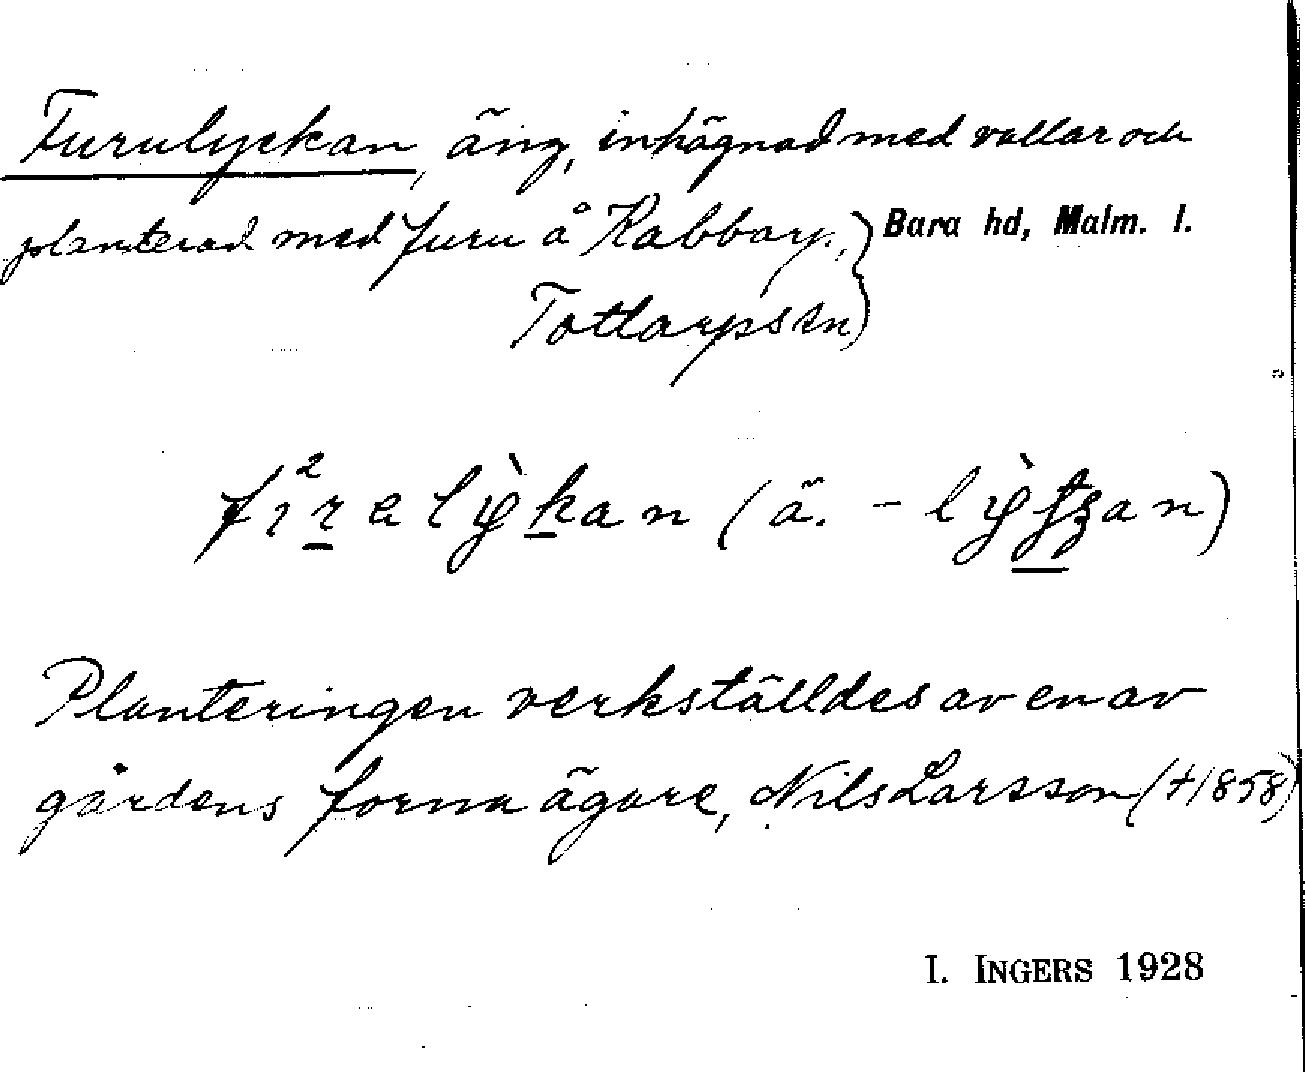 Furulyckan, äng, inhägnad med vallar och
planterad med furu å Kabbarp., Bara hd, Malm. l.
Tottarps sn
(ä. -
Planteringen verkställdes av en av
gårdens forna ägare, Nils Larsson (†1858)
I. INGERS 1928